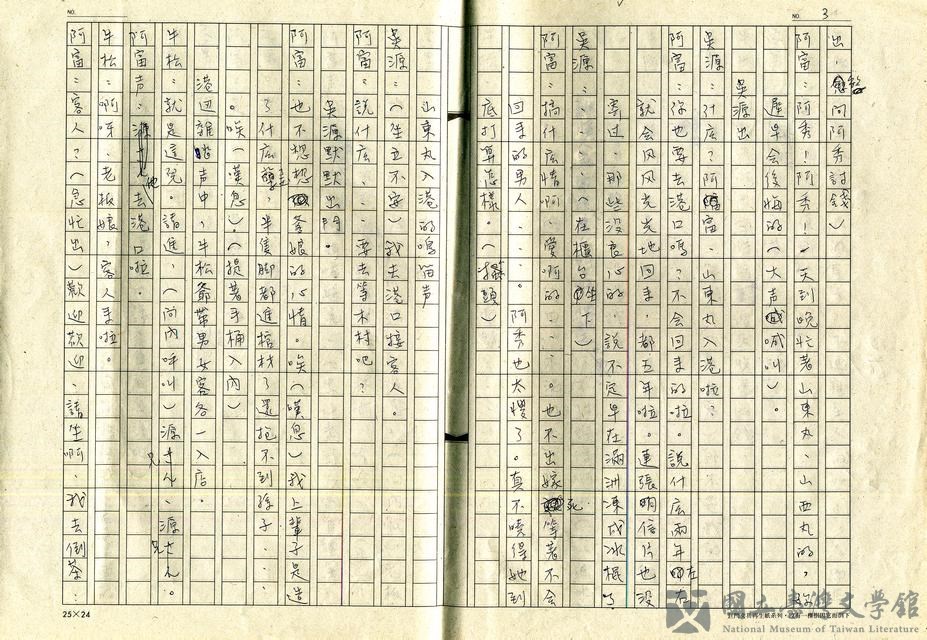 NO. 3
出。問阿秀討錢)
阿富:阿秀!阿秀!一天到晚忙著山東丸、山西丸的,
遲早会後悔的(大声喊叫)。
吳源出
吳源:什広?阿富、山東丸入港啦?
阿富:你也要去港口嗎?不会回来的啦。說什広兩年
就会风风光光地回来,都五年啦。連張明信片也没
寄过。那些没良心的,說不定早在滿洲凍成冰棍了
吳源:……(在櫃台坐下)
阿富:搞什広情啊、愛啊的……。也不出嫁死等著不会
回来的男人……。阿秀也太慢了。真不曉得她到
底打算怎樣。(搔頭)
山東丸入港的鳴笛声
吳源:(坐立不安)我去港口接客人。
阿富:說什広、要去等木村吧?
吳源默默出門。
阿富:也不想想爹娘的心情。唉(嘆息)我上輩子是造
了什広孽,半隻腳都進棺材了還抱不到孫子……
。唉(嘆息)(提著手桶入內)
港迴雜踏声中,牛松爺帶男女客各一入店。
牛松:就是這院。請進,(向內呼叫)源さん、源さん。
阿声:他去港口啦。
牛松:啊呀,老板娘,客人来啦。
阿富:客人?(急忙出)歡迎歡迎、請坐啊、我去倒茶…
25×24
NO.
國立臺灣文學館
National Museum of Taiwan Literature